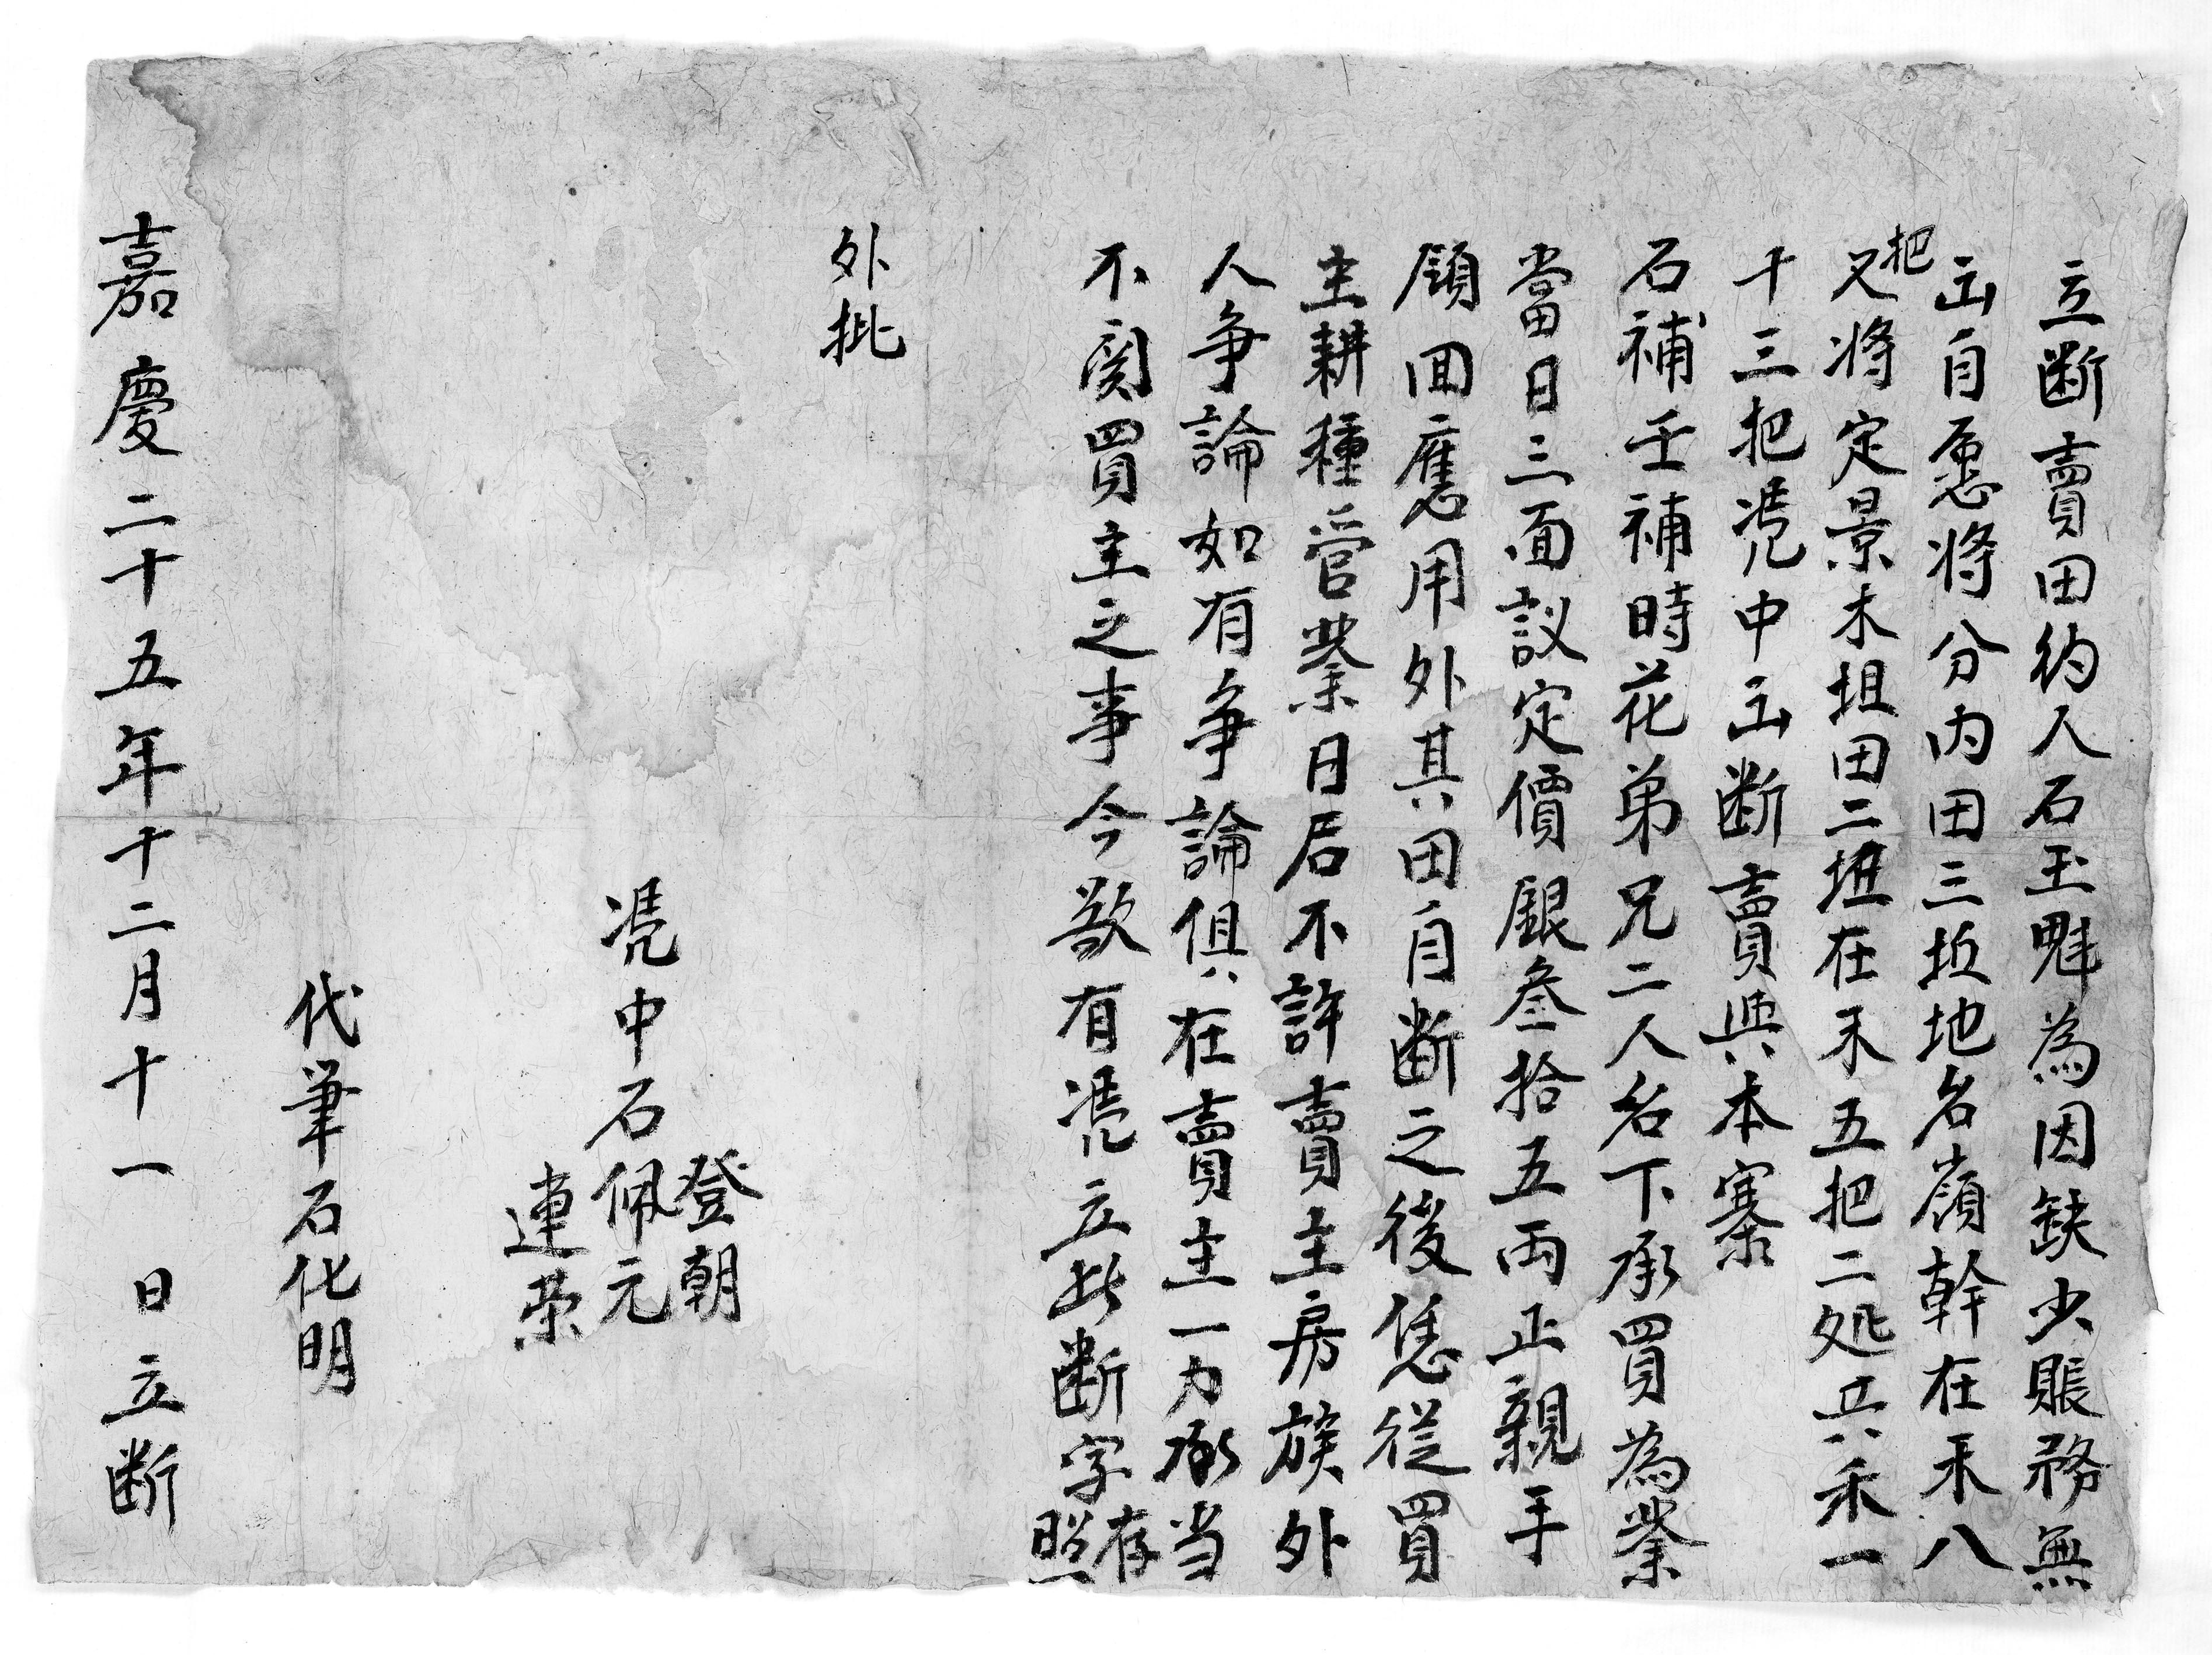 立断賣田約人石玉魁為因缺少賬務無
出自愿將分内田三坵地名嶺幹在禾八
把
又將定景木坦田二坵在禾五把二処共禾一
十三把凴中出断賣與本寨
石補壬補時花弟兄二人名下承買為業
當日三面議定價銀叁拾五両正親手
領回應用外其田自断之後恁從買
主耕種管業日后不許賣主房族外
人争論如有争論俱在賣主一力承当
不関買主之事今欲有凴立此断字存
照
外批
登朝
凴中石佩元
連荣
代筆石化明
嘉慶二十五年十二月十一 日立断